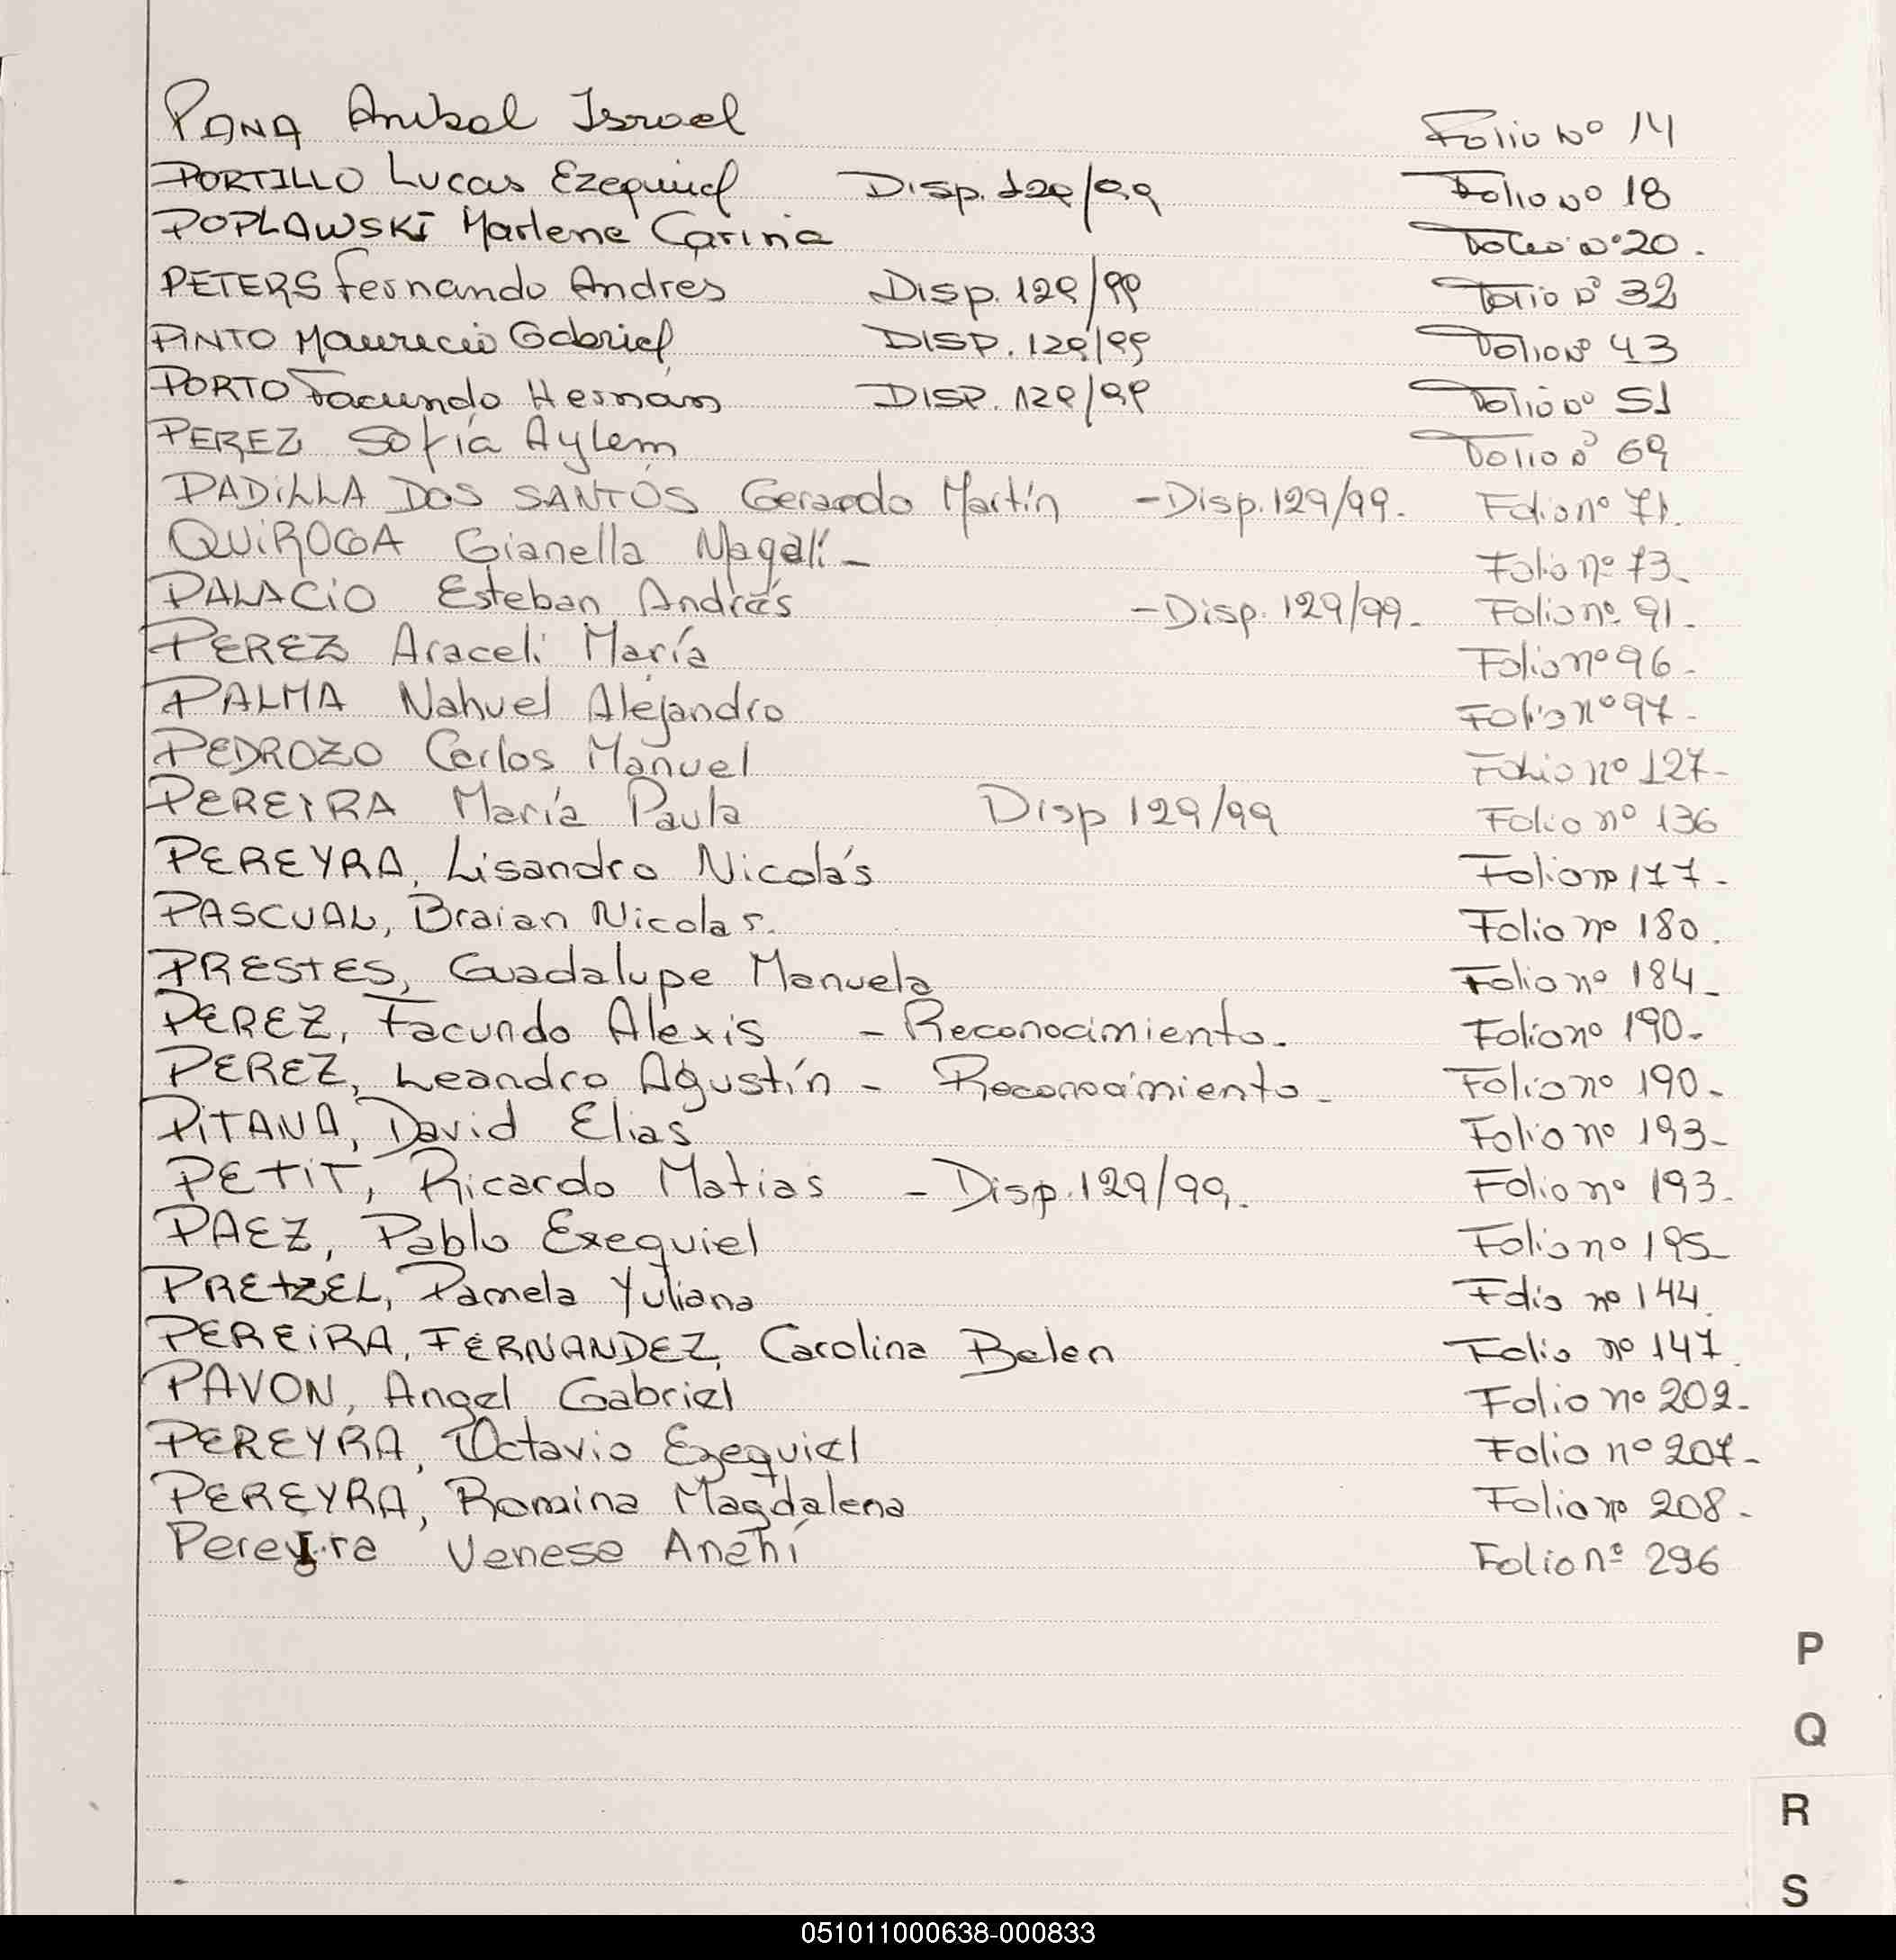 PANA Anibal Israel Folio Nº 14
PORTILLO Lucas Ezequiel Disp. 129/99 Folio Nº 18
POPLAWSKI Marlene Carina Folio Nº 20.
PETERS Fernando Andres Disp. 129/99 Folio Nº 32
PINTO Mauricio Gabriel DISP. 129/99 Folio Nº 43
PORTO Facundo Hernán DISP. 129/99 Folio Nº 51
PEREZ Sofía Aylem Folio Nº 69
PADILLA DOS SANTOS Gerardo Martín -Disp. 129/99. Folio nº 71.
QUIROGA Gianella Magalí- Folio nº 73-
PALACIO Esteban Andrés -Disp. 129/99- Folio nº 91-
PEREZ Araceli María Folio nº 96-
PALMA Nahuel Alejandro Folio nº 97-
PEDROZO Carlos Manuel Folio nº 127-
PEREIRA María Paula Disp 129/99 Folio nº 136
PEREYRA, Lisandro Nicolás Folio nº 177-
PASCUAL, Braian Nicolas. Folio nº 180.
PRESTES, Guadalupe Manuela Folio nº 184-
PEREZ, Facundo Alexis - Reconocimiento- Folio nº 190-
PEREZ, Leandro Agustín - Reconocimiento- Folio nº 190-
PITANA, David Elias Folio nº 193-
PETIT, Ricardo Matias - Disp. 129/99.- Folio nº 193-
PAEZ, Pablo Exequiel Folio nº 195-
PRETZEL, Pamela Yuliana Folio nº 144.
PEREIRA, FERNANDEZ, Carolina Belen Folio nº 147.
PAVON, Angel Gabriel Folio nº 202-
PEREYRA, Octavio Ezequiel Folio nº 207-
PEREYRA, Romina Magdalena Folio nº 208-
Pereyra Venesa Anahí Folio nº 296
P
Q
R
S
051011000638-000833